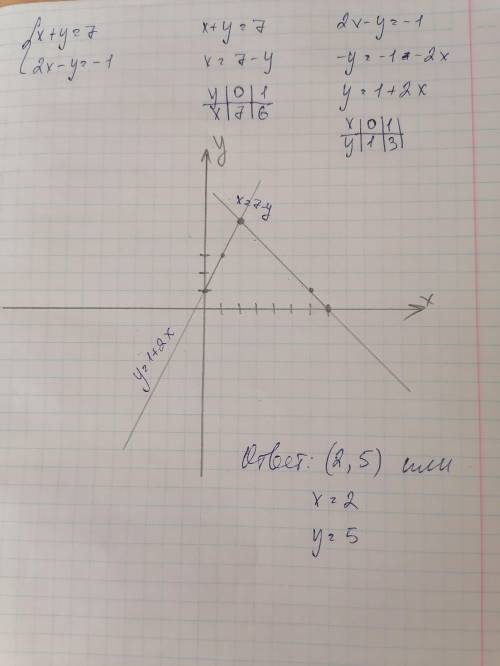 {x+y=7
2x-y=-1
x+y=7
x=7-y
y|0|1
x|7|6
2x-y=-1
-y=-1-2x
y=1+2x
x|0|1
y|1|3
y
x=7-y
x
y=1+2x
Ответ: (2,5) или
x=2
y=5